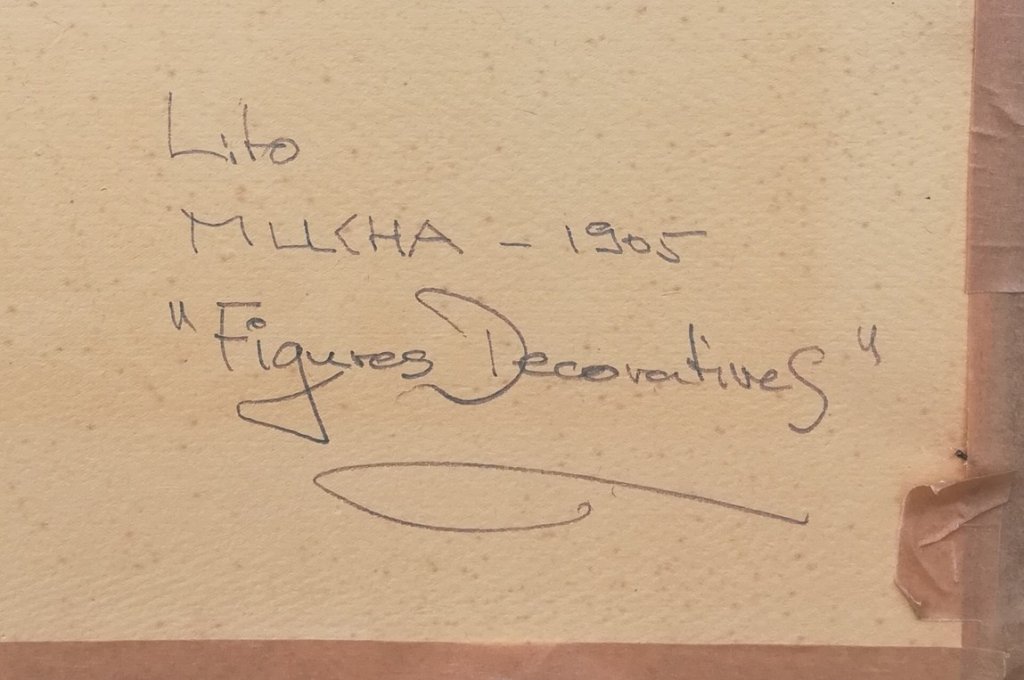 Lito
MUCHA - 1905
"Figures Decoratives"